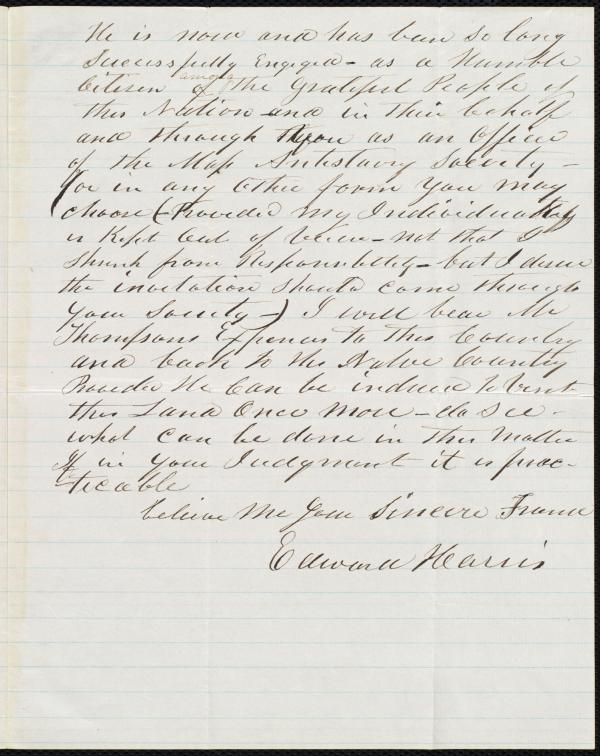 He is now and has been so long
Successfully Engaged - as a Humble
Citizen of the Grateful People of
this Nation and in their behalf
and through you as an Officer
of the Mass Antislavery Society -
(or in any other form you may
choose (Provided my Individuality
is Kept Out of View - not that I
shrink from Responsibility - but I desire
the invitation should come through
your Society -) I will bear Mr
Thompsons Expenses to this Country
and back to His Native Country
Provided He Can be induced to Visit
this Land Once More - do see -
what can be done in this Matter
If in your Judgment it is prac-
ticable
believe Me Your Sincere Friend
Edward Harris